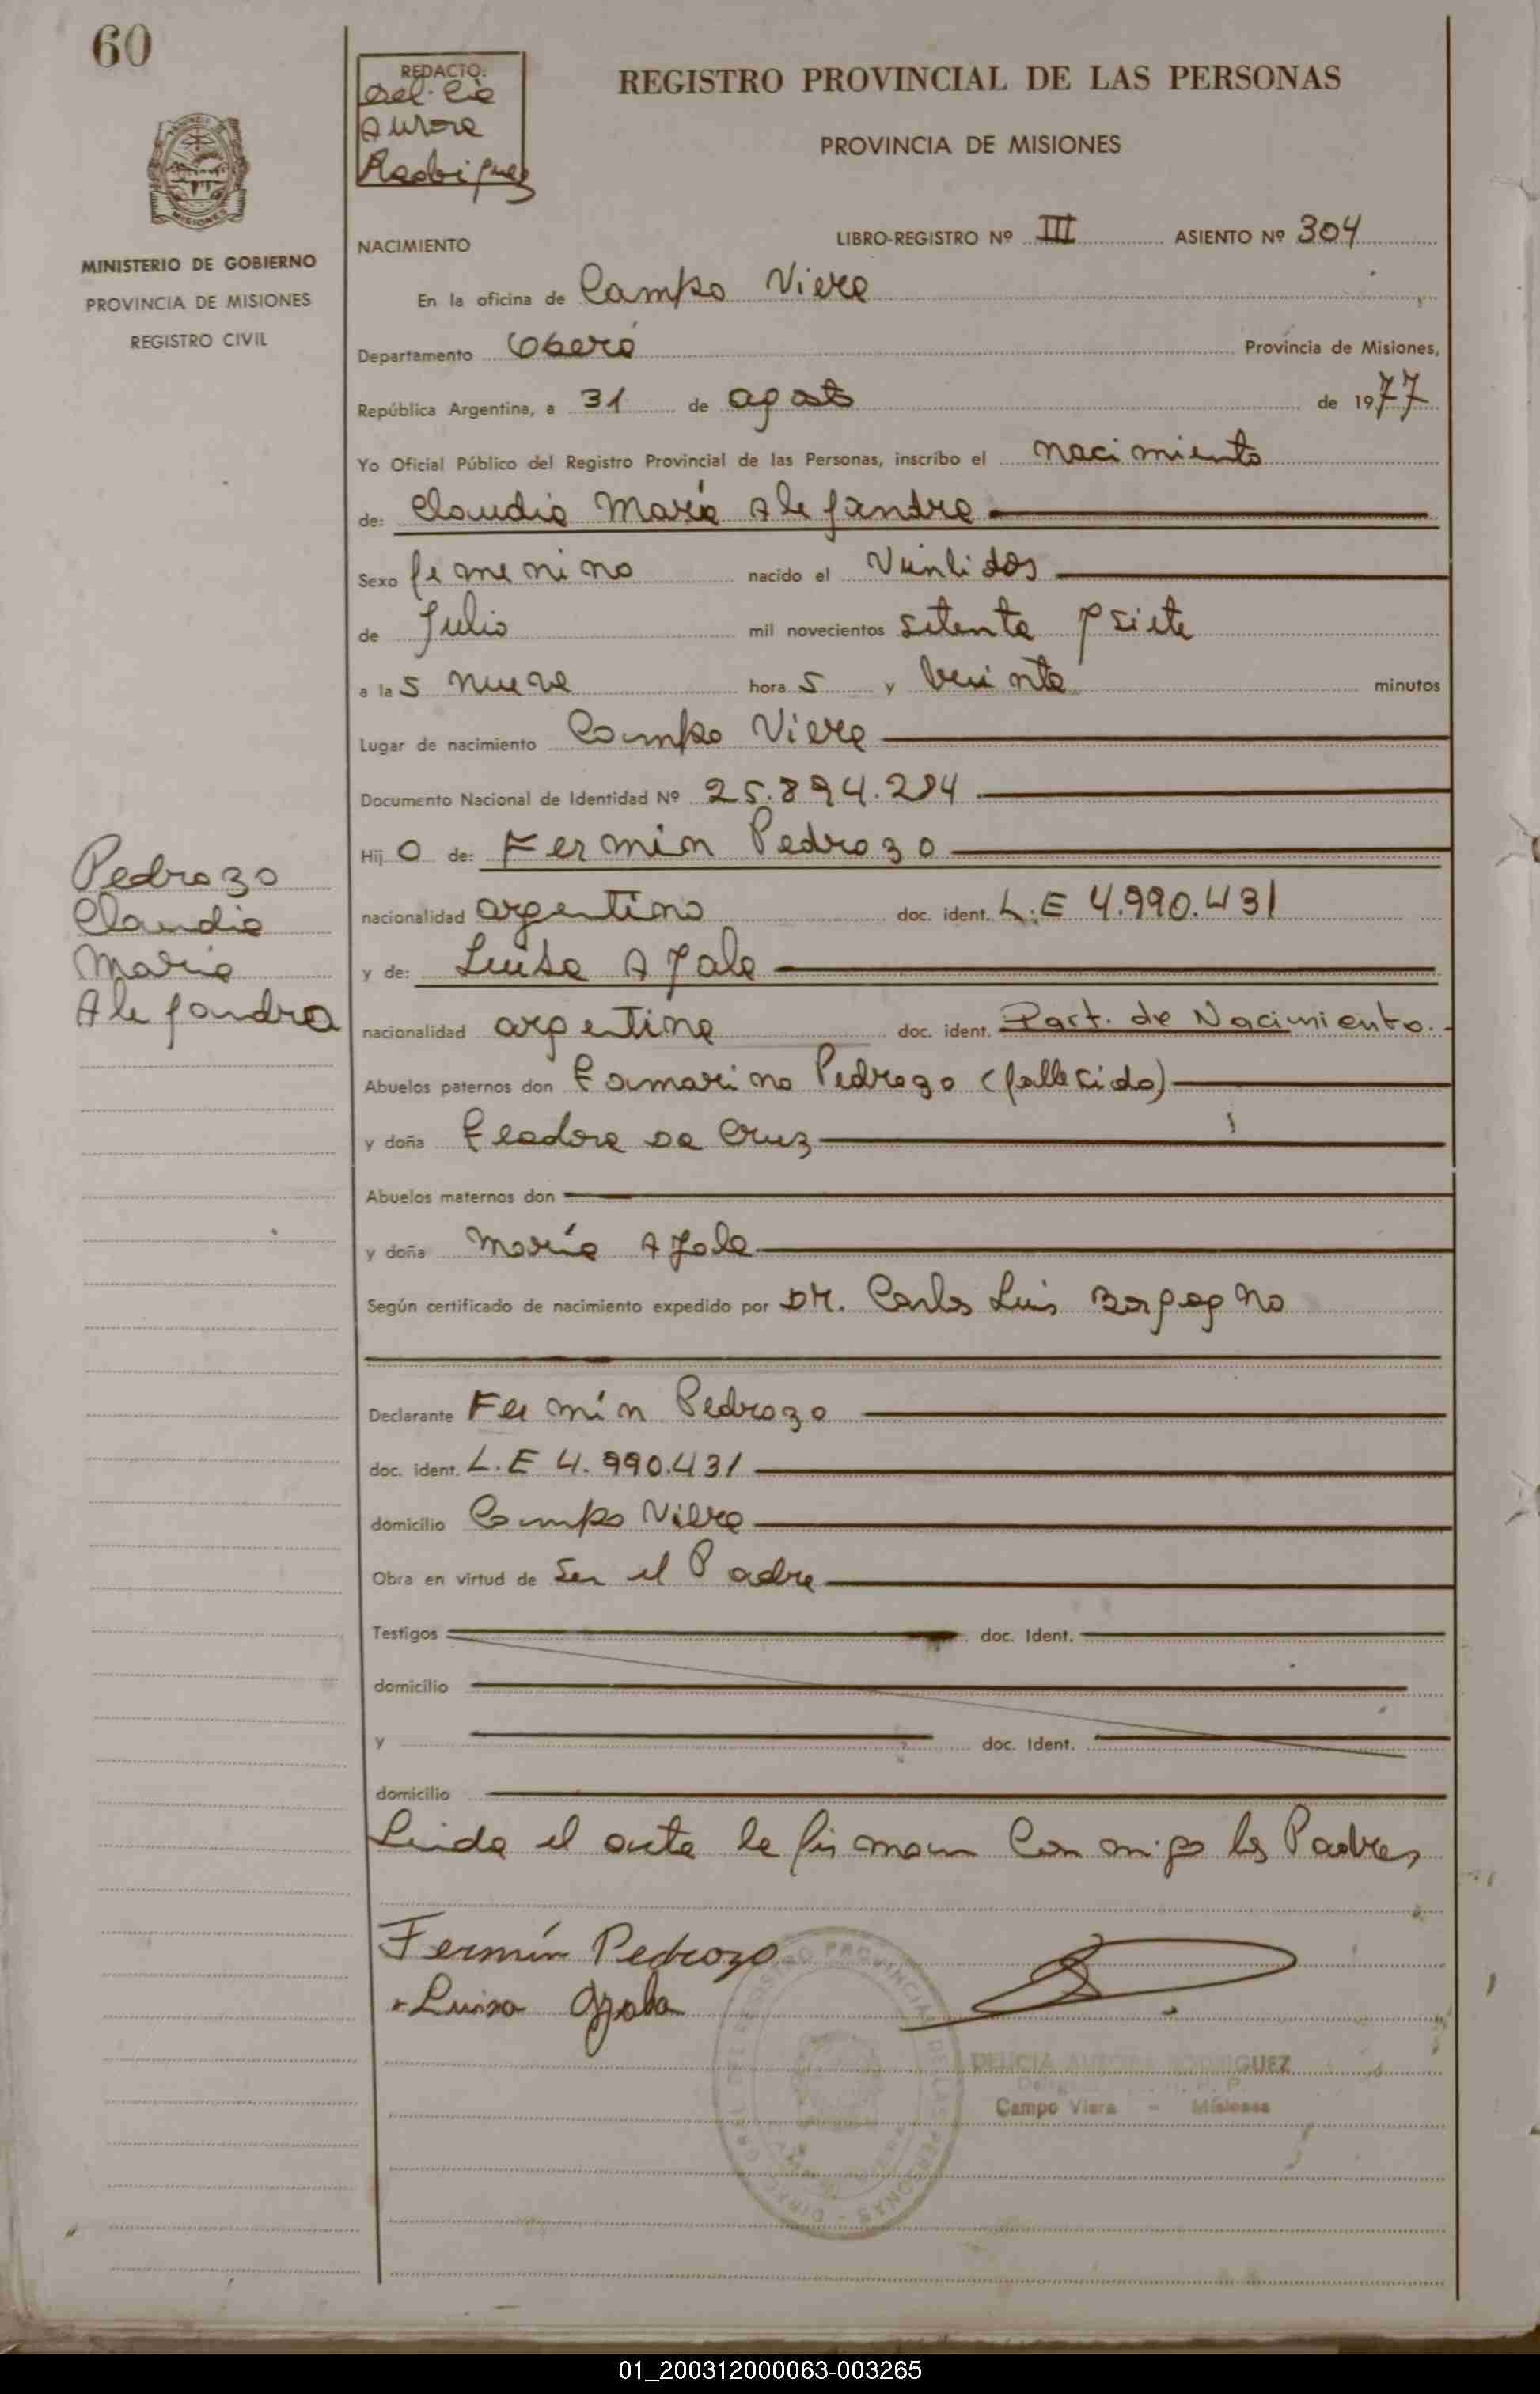 60
REDACTO:
Delicia
Aurora
Rodriguez
REGISTRO PROVINCIAL DE LAS PERSONAS
PROVINCIA DE MISIONES
MISIONES
MINISTERIO DE GOBIERNO
PROVINCIA DE MISIONES
REGISTRO CIVIL
NACIMIENTO
LIBRO-REGISTRO Nº III ASIENTO Nº 304
En la oficina de Campo Viera
Departamento Oberá Provincia de Misiones,
República Argentina, a 31 de agosto de 1977
Yo Oficial Público del Registro Provincial de las Personas, inscribo el nacimiento
de: Claudia María Alejandra
Sexo femenino nacido el Veintidos
de Julio mil novecientos setenta y siete
a las nueve horas y veinte minutos
Lugar de nacimiento Campo Viera
Documento Nacional de Identidad Nº 25.894.284
Hijo de: Fermín Pedrozo
nacionalidad argentino doc. ident. L.E 4.990.431
y de: Luisa Ayala
nacionalidad argentina doc. ident. Part. de Nacimiento.
Abuelos paternos don Camarino Pedrozo (fallecido)
y doña Eleodora Da Cruz
Abuelos maternos don
y doña María Ayala
Según certificado de nacimiento expedido por DR. Carlos Luis
Declarante Fermín Pedrozo
doc. ident. L.E 4.990.431
domicilio Campo Viera
Obra en virtud de Ser el Padre
Testigos doc. Ident.
domicilio
y doc. Ident.
domicilio
Leida el acta la firman Conmigo los Padres
Pedrozo
Claudia
Maria
Alejandra
Fermín Pedrozo
Luisa Ayala
DELICIA AURORA RODRIGUEZ
Campo Viera - Misiones
01_200312000063-003265